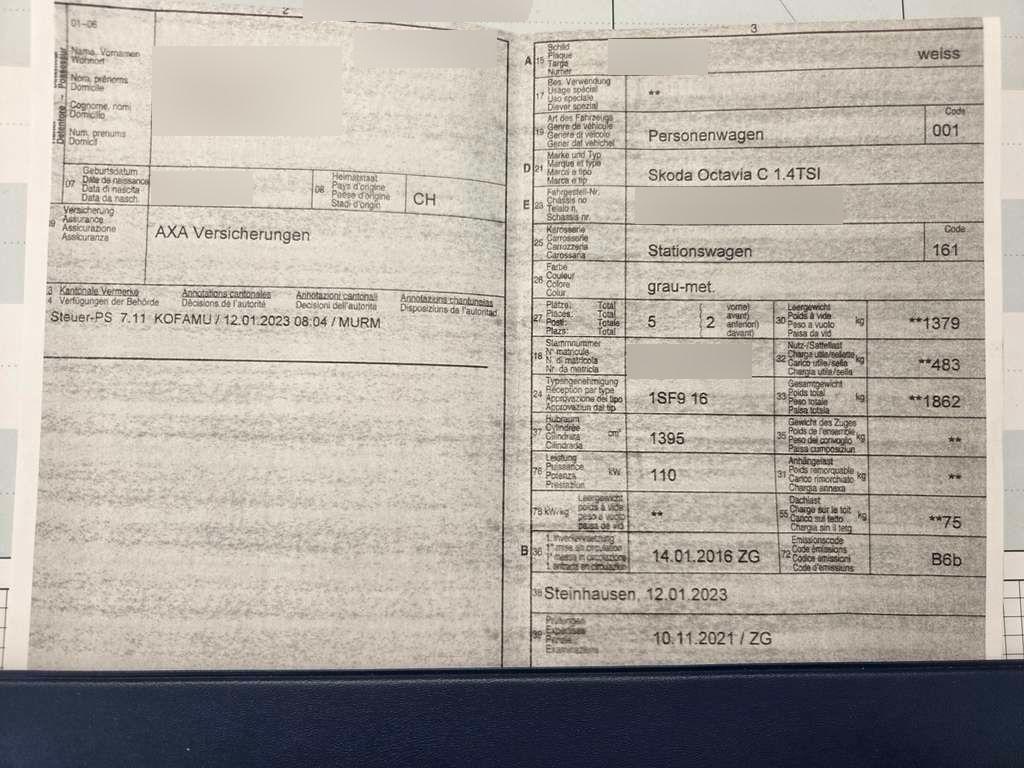 2
01-06
Name, Vornamen
Wohnort
Nom, prénoms
Domicile
Cognome, nomi
Domicilio
Num, prenums
Domicil
Detentore - Possessur
07
Geburtsdatum
Date de naissance
Data di nascita
Data da nasch.
08
Heimatstaat
Pays d'origine
Paese d'origine
Stadi d'origin
CH
09
Versicherung
Assurance
Assicurazione
Assicuranza
AXA Versicherungen
Kantonale Vermerke
Verfügungen der Behörde
Annotations cantonales
Décisions de l'autorité
Annotazioni cantonali
Decisioni dell'autorità
Annotaziuns chantunalas
Disposiziuns da l'autoritad
Steuer-PS 7.11 KOFAMU / 12.01.2023 08:04 / MURM
3
A 15
Schild
Plaque
Targa
Numer
weiss
17
Bes. Verwendung
Usage spécial
Uso speciale
Diever spezial
**
19
Art des Fahrzeugs
Genre de véhicule
Genere di veicolo
Gener dal vehichel
Personenwagen
Code
001
D 21
Marke und Typ
Marque et type
Marca e tipo
Marca e tip
Skoda Octavia C 1.4TSI
E 23
Fahrgestell-Nr.
Châssis no
Telaio n.
Schassis nr.
25
Karosserie
Carrosserie
Carrozzeria
Carossaria
Stationswagen
Code
161
26
Farbe
Couleur
Colore
Colur
grau-met.
27
Plätze: Total
Places: Total
Posti: Totale
Plazs: Total
5
( 2
vorne)
avant)
anteriori)
davant)
30
Leergewicht
Poids à vide
Peso a vuoto
Paisa da vid
kg
**1379
18
Stammnummer
N° matricule
N. di matricola
Nr. da matricla
32
Nutz-/Sattellast
Charge utile/sellette
Carico utile/sella
Chargia utila/sella
kg
**483
24
Typengenehmigung
Réception par type
Approvazione del tipo
Approvaziun dal tip
1SF9 16
33
Gesamtgewicht
Poids total
Peso totale
Paisa totala
kg
**1862
37
Hubraum
Cylindrée
Cilindrata
Cilindrada
cm³
1395
35
Gewicht des Zuges
Poids de l'ensemble
Peso del convoglio
Paisa cumposiziun
kg
**
76
Leistung
Puissance
Potenza
Prestaziun
kW
110
31
Anhängelast
Poids remorquable
Carico rimorchiato
Chargia annexa
kg
**
78 kW/kg
Leergewicht
poids à vide
peso a vuoto
paisa da vid
**
55
Dachlast
Charge sur le toit
Carico sul tetto
Chargia sin il tetg
kg
**75
B 36
1. Inverkehrsetzung
1re mise en circulation
1a messa in circolazione
1. entrada en circulaziun
14.01.2016 ZG
72
Emissionscode
Code émissions
Codice emissioni
Code d'emissiuns
B6b
38 Steinhausen, 12.01.2023
39
Prüfungen
Expertises
Examinaziuns
10.11.2021 / ZG